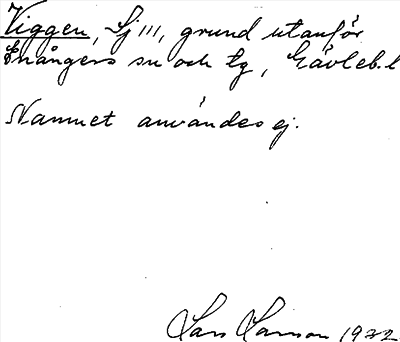 Viggen, Sj III, grund utanför
Enångers sn och tg, Gävleb. l
Namnet användes ej.
Lars Larson 1972